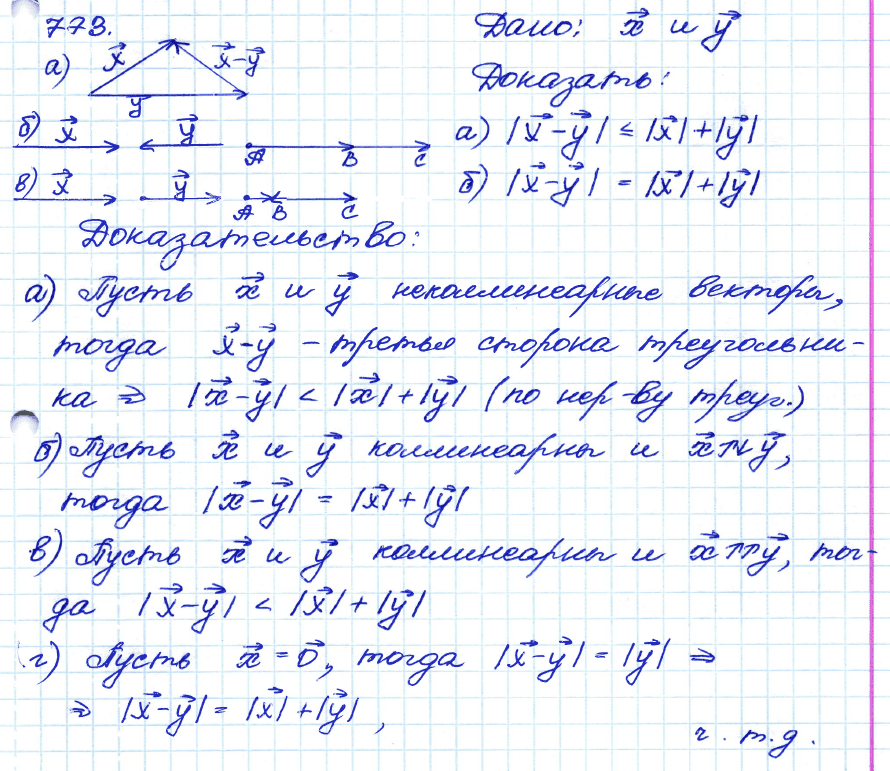 773.
Дано: x⃗ и y⃗
а) x⃗ x⃗-y⃗ y⃗
Доказать:
б) x⃗ y⃗ A B C
а) |x⃗-y⃗| ≤ |x⃗|+|y⃗|
в) x⃗ y⃗ A B C
б) |x⃗-y⃗| = |x⃗|+|y⃗|
Доказательство:
а) Пусть x⃗ и y⃗ неколлинеарные векторы,
тогда x⃗-y⃗ – третья сторона треугольни-
ка ⇒ |x⃗-y⃗| < |x⃗|+|y⃗| (по нер-ву треуг.)
б) Пусть x⃗ и y⃗ коллинеарны и x⃗↑↓y⃗,
тогда |x⃗-y⃗| = |x⃗|+|y⃗|
в) Пусть x⃗ и y⃗ коллинеарны и x⃗↑↑y⃗, тог-
да |x⃗-y⃗| < |x⃗|+|y⃗|
г) Пусть x⃗ = 0⃗, тогда |x⃗-y⃗| = |y⃗| ⇒
⇒ |x⃗-y⃗| = |x⃗|+|y⃗|,
ч.т.д.